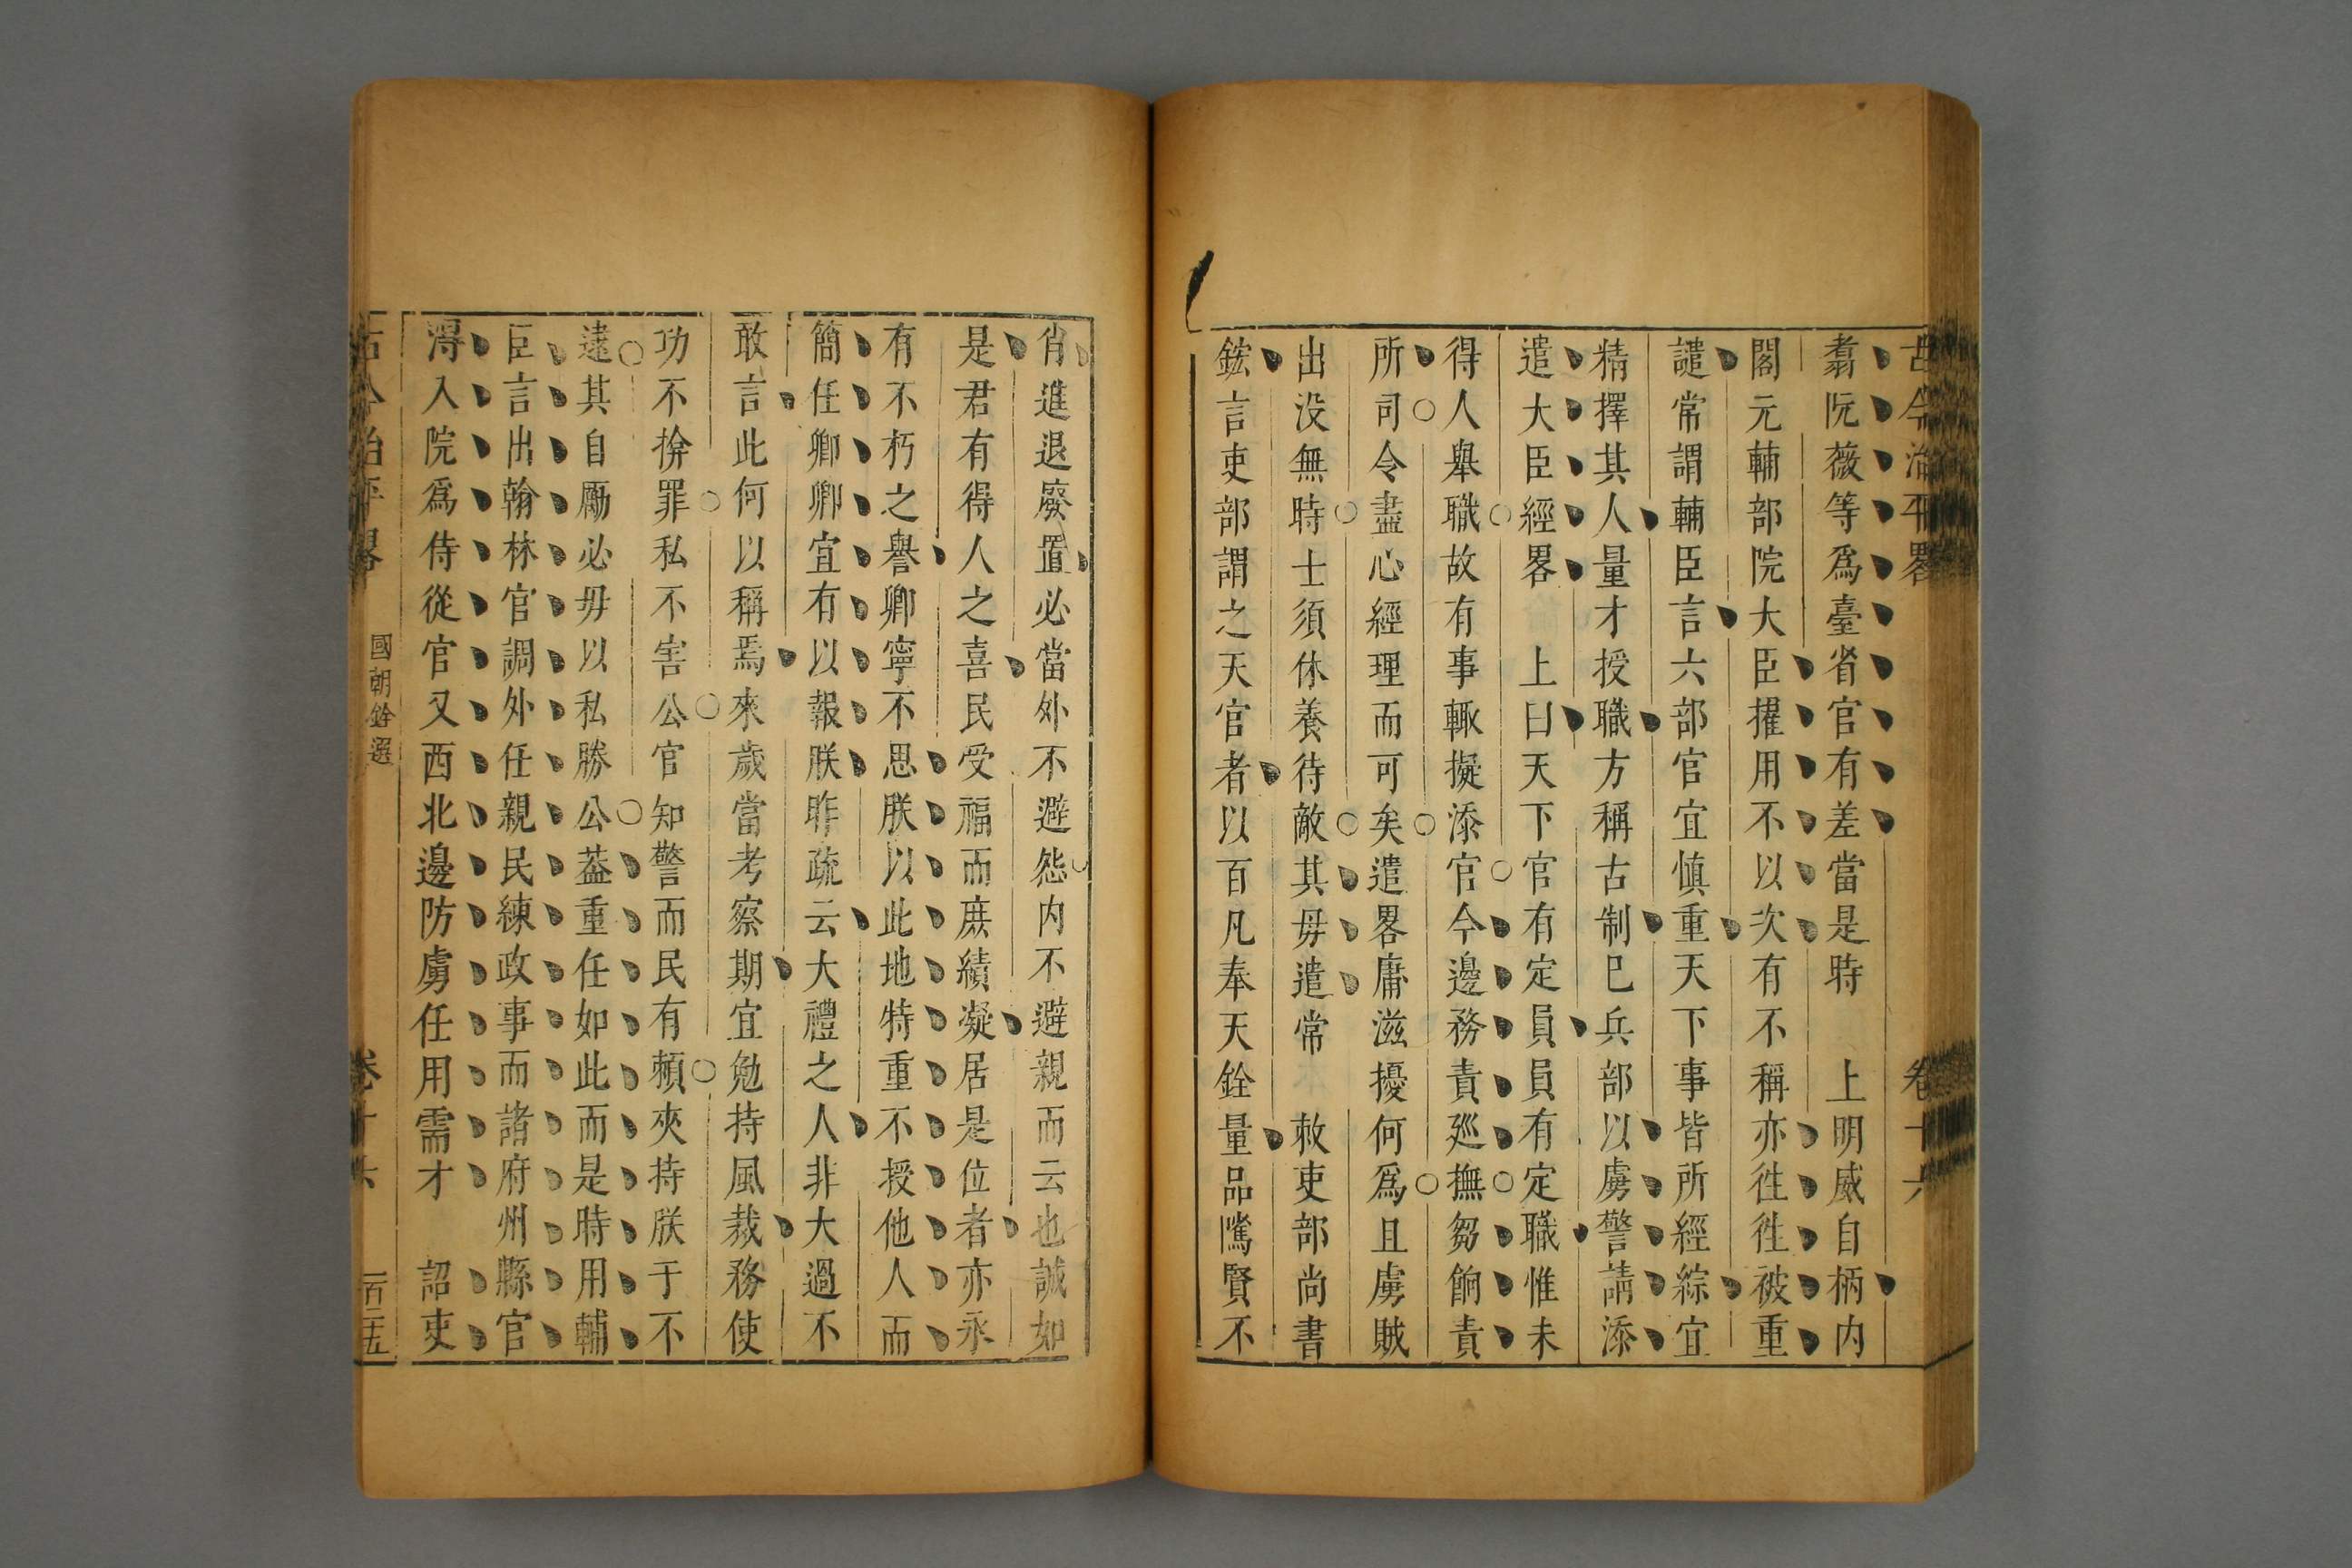 古今治平畧 卷十六
翥阮薇等爲臺省官有差當是時 上明威自柄内
閣元輔部院大臣擢用不以次有不稱亦徃徃被重
譴常謂輔臣言六部官宜慎重天下事皆所經綜宜
精擇其人量才授職方稱古制巳兵部以虜警請添
遣大臣經畧 上曰天下官有定員員有定職惟未
得人舉職故有事輙擬添官今邊務責廵撫芻餉責
所司令盡心經理而可矣遣畧庸滋擾何爲且虜賊
出没無時士須休養待敵其毋遣常 敕吏部尚書
鋐言吏部謂之天官者以百凡奉天銓量品隲賢不
肖進退廢置必當外不避怨内不避親而云也誠如
是君有得人之喜民受福而庶績凝居是位者亦永
有不朽之譽卿寧不思朕以此地特重不授他人而
簡任卿卿宜有以報朕昨疏云大禮之人非大過不
敢言此何以稱焉來歲當考察期宜勉持風裁務使
功不揜罪私不害公官知警而民有頼夾持朕于不
逮其自勵必毋以私勝公葢重任如此而是時用輔
臣言出翰林官調外任親民練政事而諸府州縣官
得入院爲侍從官又西北邊防虜任用需才 詔吏
古今治平畧 國朝銓選 卷十六 一百二十五